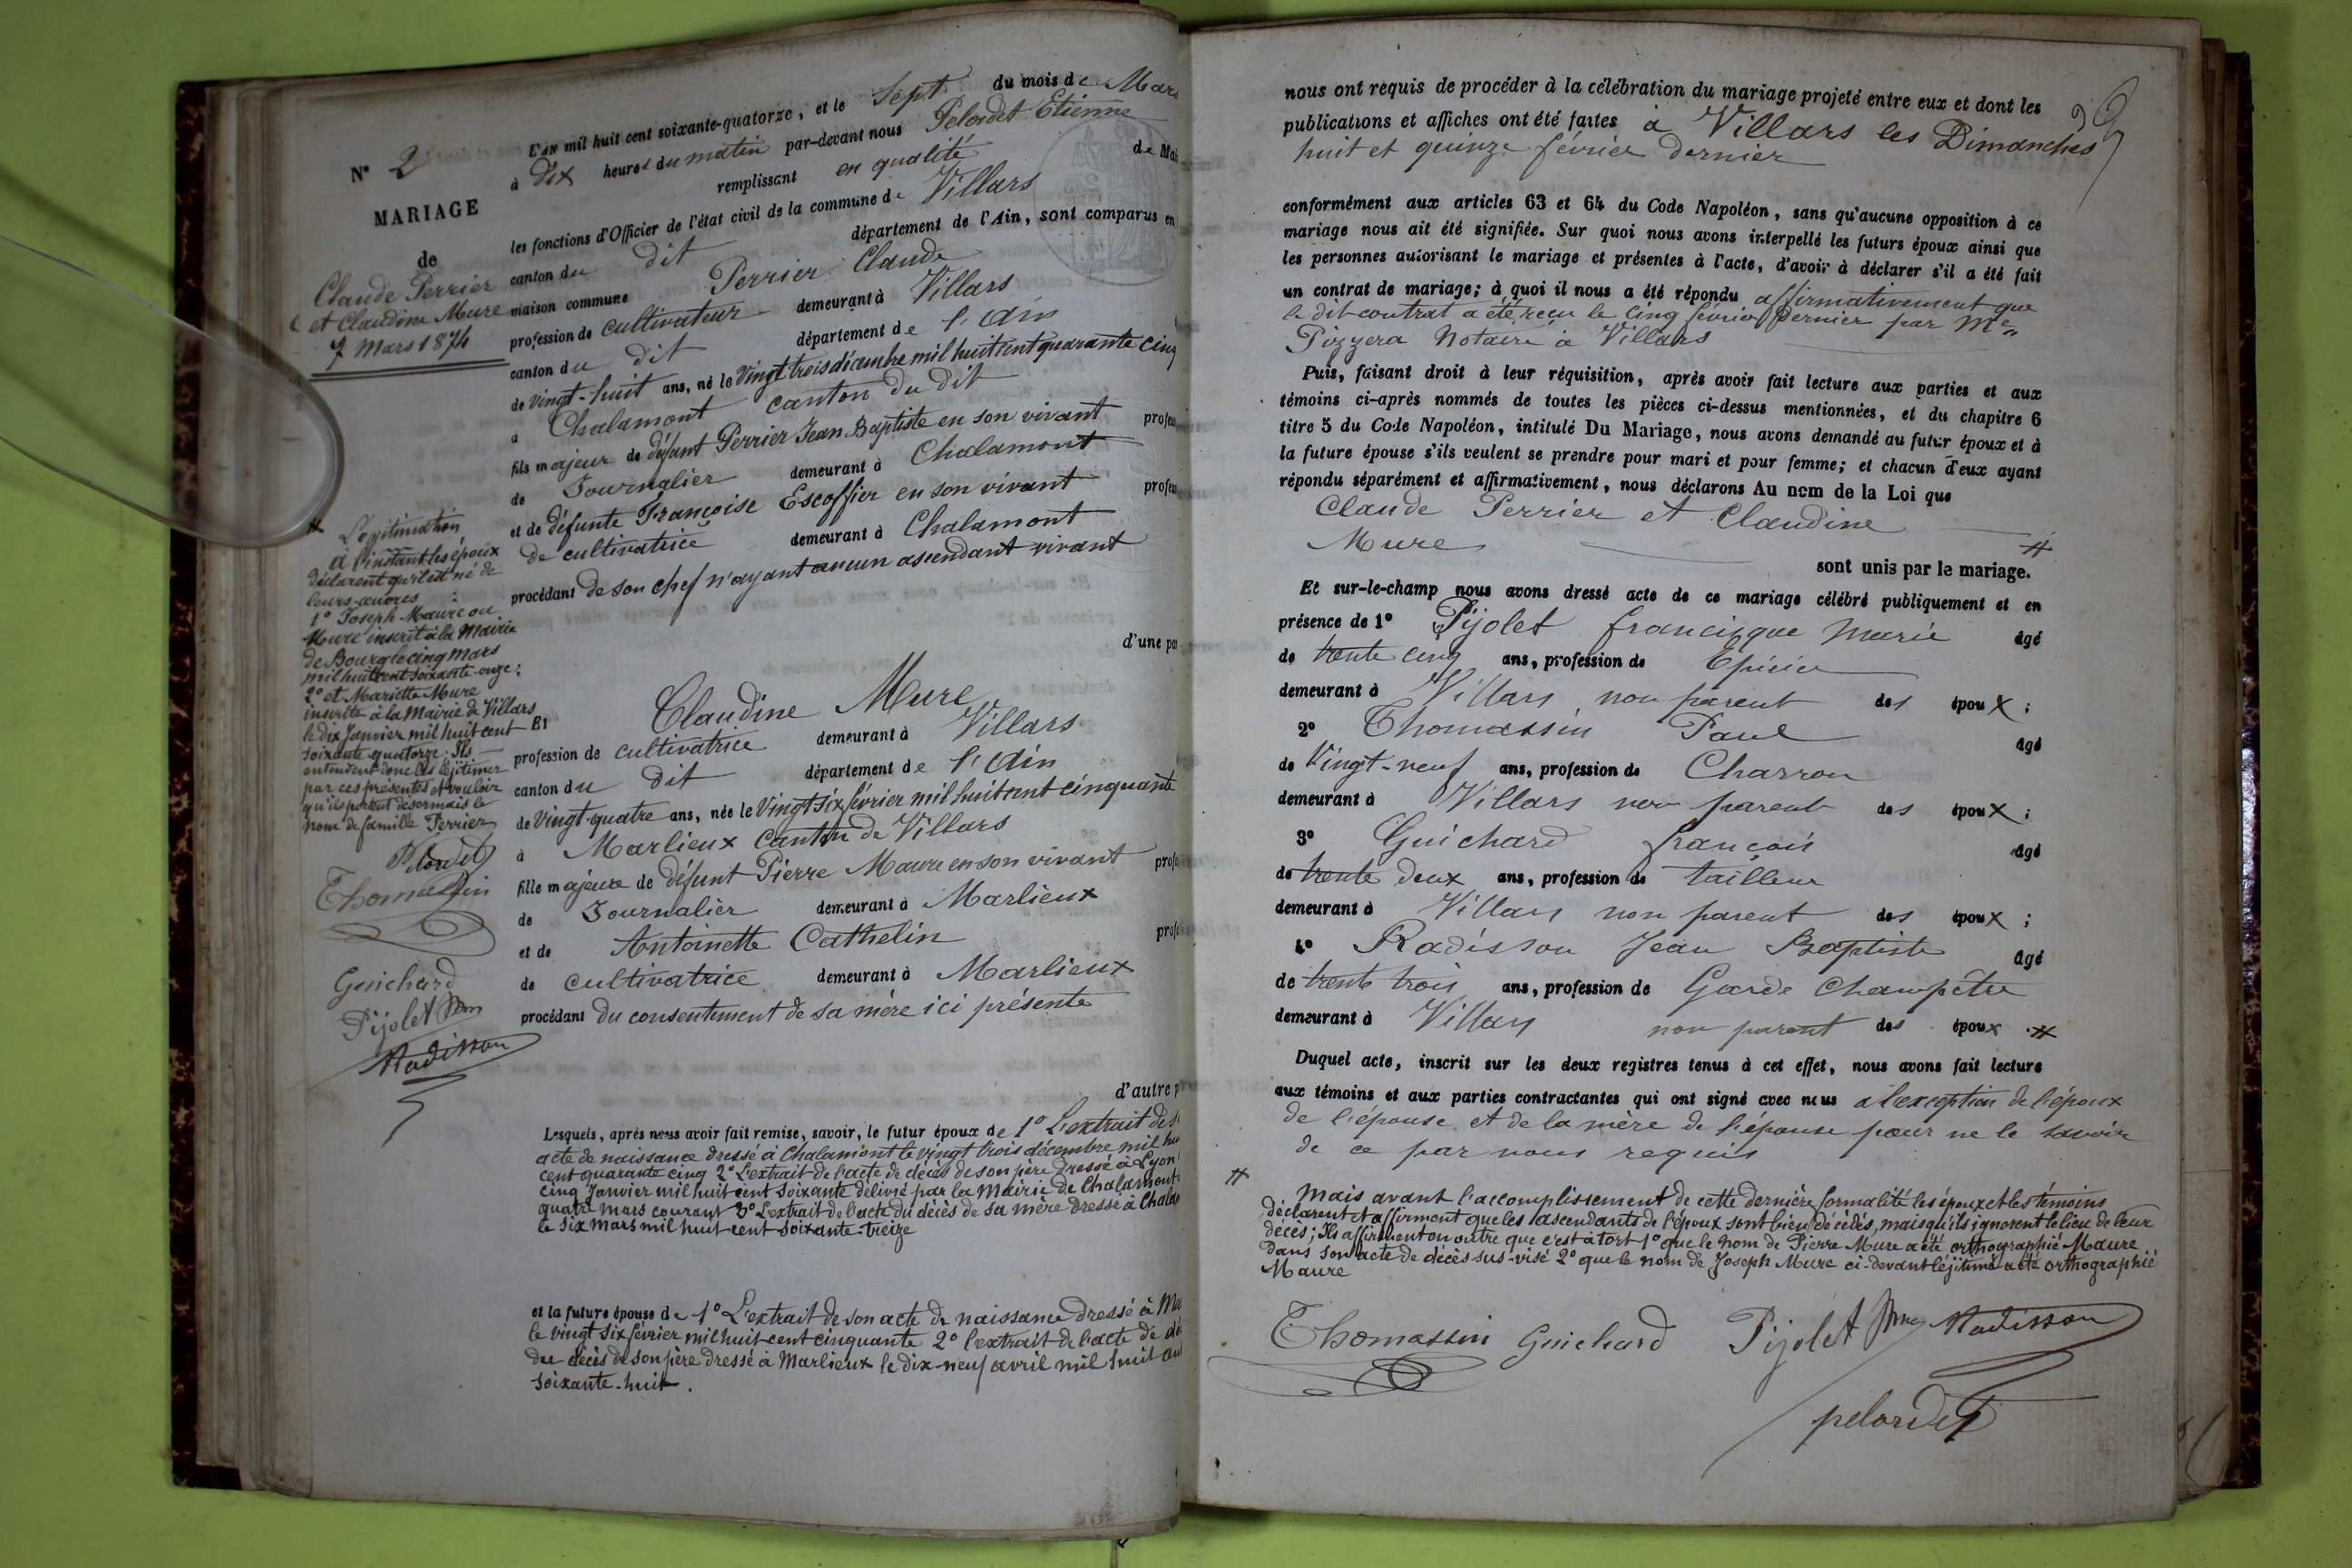 N° 2
MARIAGE
de
Claude Perrier
et Claudine Mure
7 Mars 1874
L'an mil huit cent soixante-quatorze, et le Sept du mois de Mars
à dix heures du matin par-devant nous Pelordet Etienne
remplissant en qualité de Mai
les fonctions d'Officier de l'état civil de la commune de Villars
canton du dit département de l'Ain, sont comparus en
maison commune Perrier Claude
profession de cultivateur demeurant à Villars
canton du dit département de l'Ain
de vingt-huit ans, né le vingt trois décembre mil huit cent quarante cinq
à Chalamont canton du dit
fils majeur de défunt Perrier Jean Baptiste en son vivant profes
de Journalier demeurant à Chalamont
et de défunte Françoise Escoffier en son vivant profess
de cultivatrice demeurant à Chalamont
procédant de son chef n'ayant aucun ascendant vivant
d'une par
# Légitimation
à l'instant les époux
déclarent qu'il est né de
leurs œuvres :
1° Joseph Maure ou
Mure inscrit à la Mairie
de Bourg le cinq mars
mil huit cent soixante-onze :
2° et Mariette Mure
inscrite à la Mairie de Villars
le dix Janvier mil huit cent
soixante-quatorze. Ils
entendent donc les léjitimer
par ces présentes et vouloir
qu'ils portent désormais le
nom de famille Perrier
Pelordet
Thomassin
Guichard
Pijolet
Radisson
Et Claudine Mure
profession de cultivatrice demeurant à Villars
canton du dit département de l'Ain
de vingt-quatre ans, née le vingt six février mil huit cent cinquante
à Marlieux canton de Villars
fille majeure de défunt Pierre Maure en son vivant profe
de Journalier demeurant à Marlieux
et de Antoinette Cathelin profe
de cultivatrice demeurant à Marlieux
procédant du consentement de sa mère ici présente
d'autre p
Lesquels, après nous avoir fait remise, savoir, le futur époux de 1° L'extrait de s
acte de naissance dressé à Chalamont le vingt trois décembre mil hu
cent quarante cinq 2° L'extrait de l'acte de décès de son père dressé à Lyon
cinq Janvier mil huit cent soixante délivré par la Mairie de Chalamont
quatre mars courant 3° L'extrait de l'acte du décès de sa mère dressé à Chalam
le six Mars mil huit cent soixante-treize
et la future épouse de 1° L'extrait de son acte de naissance dressé à Ma
le vingt six février mil huit cent cinquante 2° l'extrait de l'acte de dé
du décès de son père dressé à Marlieux le dix-neuf avril mil huit cen
soixante-huit.
nous ont requis de procéder à la célébration du mariage projeté entre eux et dont les
publications et affiches ont été faites à Villars les Dimanches
huit et quinze février dernier
conformément aux articles 63 et 64 du Code Napoléon, sans qu'aucune opposition à ce
mariage nous ait été signifiée. Sur quoi nous avons interpellé les futurs époux ainsi que
les personnes autorisant le mariage et présentes à l'acte, d'avoir à déclarer s'il a été fait
un contrat de mariage; à quoi il nous a été répondu affirmativement que
le dit contrat a été reçu le cinq février dernier par Me
Pizzera Notaire à Villars
Puis, faisant droit à leur réquisition, après avoir fait lecture aux parties et aux
témoins ci-après nommés de toutes les pièces ci-dessus mentionnées, et du chapitre 6
titre 5 du Code Napoléon, intitulé Du Mariage, nous avons demandé au futur époux et à
la future épouse s'ils veulent se prendre pour mari et pour femme; et chacun d'eux ayant
répondu séparément et affirmativement, nous déclarons Au nom de la Loi que
Claude Perrier et Claudine
Mure #
sont unis par le mariage.
Et sur-le-champ nous avons dressé acte de ce mariage célébré publiquement et en
présence de 1° Pijolet francisque Marie âgé
de trente cinq ans, profession de Epicier
demeurant à Villars non parent des époux ;
2° Thomassin Paul âgé
de Vingt-neuf ans, profession de Charron
demeurant à Villars non parent des époux ;
3° Guichard françois âgé
de trente deux ans, profession de tailleur
demeurant à Villars non parent des époux ;
4° Radisson Jean Baptiste âgé
de trente trois ans, profession de Garde Champêtre
demeurant à Villars non parent des époux . #
Duquel acte, inscrit sur les deux registres tenus à cet effet, nous avons fait lecture
aux témoins et aux parties contractantes qui ont signé avec nous à l'exception de l'époux
de l'épouse et de la mère de l'épouse pour ne le savoir
de ce par nous requis
# Mais avant l'accomplissement de cette dernière formalité les époux et les témoins
déclarent et affirment que les ascendants de l'époux sont bien décédés, mais qu'ils ignorent le lieu de leur
décès; Ils affirment en outre que c'est à tort 1° que le nom de Pierre Mure a été orthographié Maure
dans son acte de décès sus-visé 2° que le nom de Joseph Mure ci-devant léjitimé a été orthographié
Maure
Thomassin Guichard Pijolet Radisson
pelordet